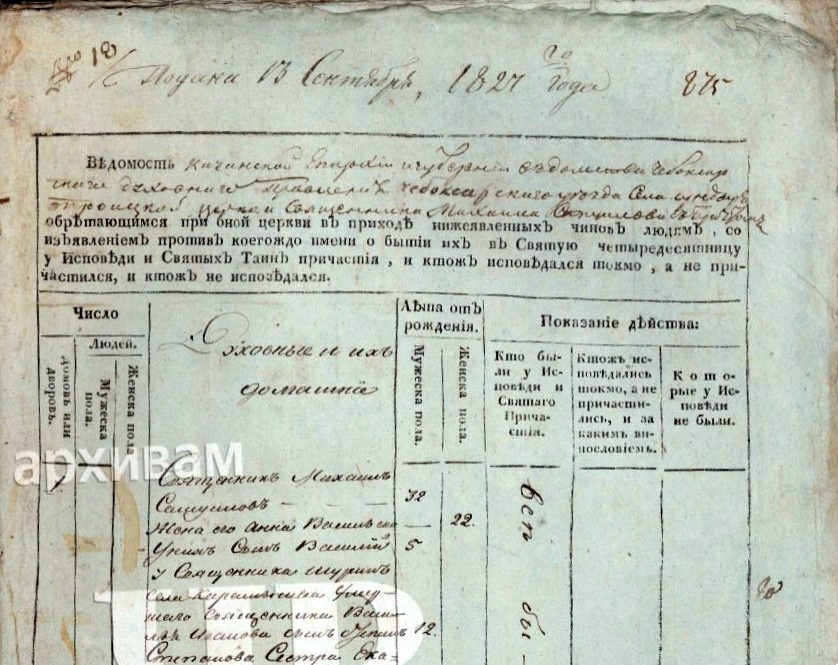 18
Подана 13 Сентября, 1827 го года 875
Вѣдомость Казанской Епархіи и губерніи вѣдомства Чебоксар
скаго духовнаго Правленія Чебоксарскаго уѣзда Села
Троицкой церкви Священника Михаила
обрѣтающимся при оной церкви въ приходѣ нижеявленныхъ чиновъ людямъ, со
изъявленіемъ противъ коегождо имени о бытіи ихъ въ Святую четыредесятницу
у Исповѣди и Святыхъ Таинъ причастія, и ктожъ исповѣдался токмо, а не при-
частился, и ктожъ не исповѣдался.
Число
Людей.
Домовъ или дворовъ.
Мужеска пола.
Женска пола
Духовные и ихъ
домашніе
Лѣта отъ
рожденія.
Мужеска пола.
Женска пола.
Показаніе дѣйства:
Кто бы-
ли у Ис-
повѣди и
Святаго
Прича-
стія.
Ктожъ ис-
повѣдались
токмо, а не
причасти-
лись, и за
какимъ ви-
нословіемъ.
К о т о-
рые у Ис-
повѣди
не были.
архивам
1 Священникъ Михаилъ
Самуиловъ 32
Жена его Анна Васильева 22.
У нихъ Сынъ Василій 5
У Священника шуринъ
села умер-
шаго священника Васи-
лья Иванова сынъ 12.
Степанова Сестра Ека-
всѣ бы-